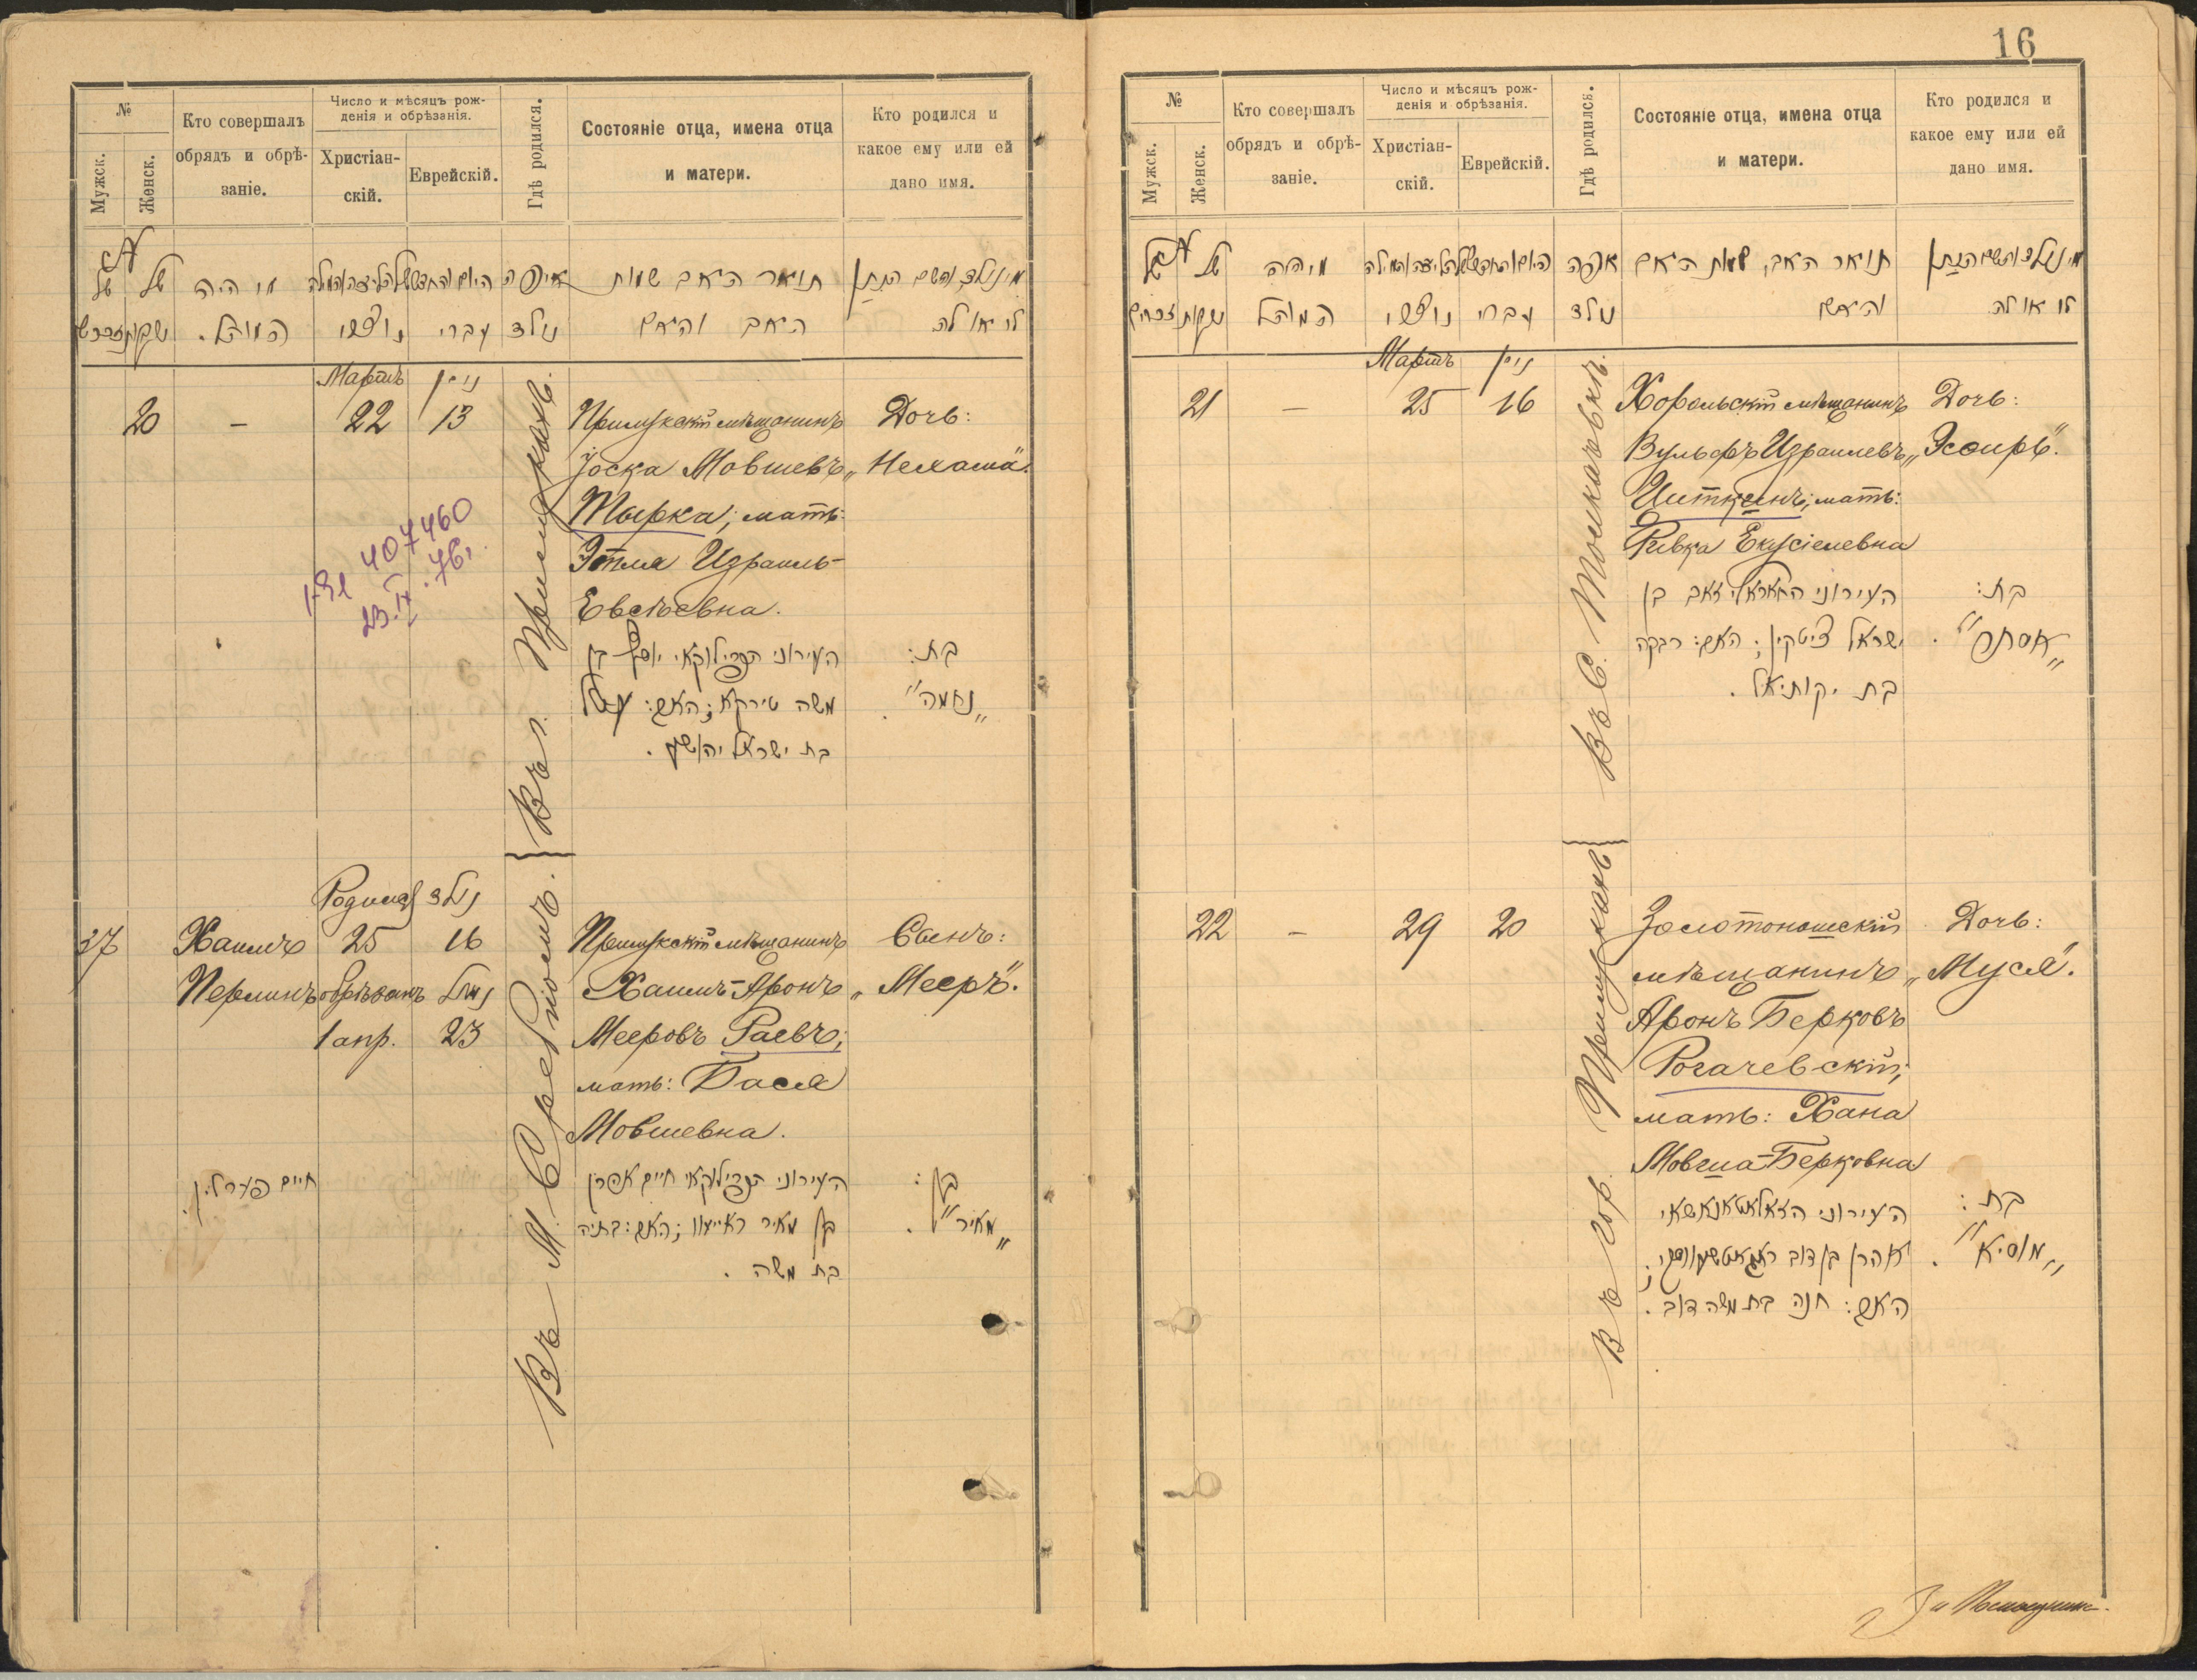 №
Мужск.
Женск.
Кто совершалъ
обрядъ и обрѣ-
заніе.
Число и мѣсяцъ рож-
денія и обрѣзанія.
Христіан-
скій.
Еврейскій.
Гдѣ родился.
Состояніе отца, имена отца
и матери.
Кто родился и
какое ему или ей
дано имя.
של של מי היה איפה תואר האב שמות
נקבות המוהל. נוצרי עברי נולד האב והאם לו או לה
Мартъ ניסן
20 – 22 13
Въ г. Прилукахъ.
Прилукскій мѣщанинъ
Іоска Мовшевъ
Тырка; мать:
Этля Израиль-
Евсѣевна.
Дочь:
„Нехама".
העירוני הפרילוקאי יוסף בן
משה טירקא; האם: עטל
בת ישראל יהושע.
בת:
„נחמה".
407460
23.IX.76г.
Родился נולד
27 Хаимъ 25 16
Перлинъ обрѣзанъ נימול
1 апр. 23
Въ М. Срѣбномъ.
Прилукскій мѣщанинъ
Хаимъ-Аронъ
Мееровъ Раевъ;
мать: Бася
Мовшевна.
Сынъ:
„Мееръ".
חיים פערלין.
העירוני הפרילוקאי חיים אהרן
בן מאיר ראייעוו; האם: בתיה
בת משה.
בן:
„מאיר".
16
№
Мужск.
Женск.
Кто совершалъ
обрядъ и обрѣ-
заніе.
Число и мѣсяцъ рож-
денія и обрѣзанія.
Христіан-
скій.
Еврейскій.
Гдѣ родился.
Состояніе отца, имена отца
и матери.
Кто родился и
какое ему или ей
дано имя.
של מי היה איפה תואר האב, שמות האב
זכרים נקבות המוהל נוצרי עברי נולד והאם לו או לה
Мартъ ניסן
21 – 25 16
Въ С. Мошкаовкѣ.
Хорольскій мѣщанинъ
Вульфъ Израилевъ
Циткинъ; мать:
Ривка Екусіелевна
Дочь:
„Эсѳирь".
העירוני החאראלי זאב בן
ישראל ציטקין; האם: רבקה
בת יקותיאל.
בת:
„אסתר".
22 – 29 20
Въ гор. Прилукахъ
Золотоношскій
мѣщанинъ
Аронъ Берковъ
Рогачевскій;
мать: Хана
Мовша-Берковна
Дочь:
„Муся".
העירוני הזאלאטאנאשאי
אהרן בן דוב ראגאטשעווסקי;
האם: חנה בת משה דוב.
בת:
„מוסיא".